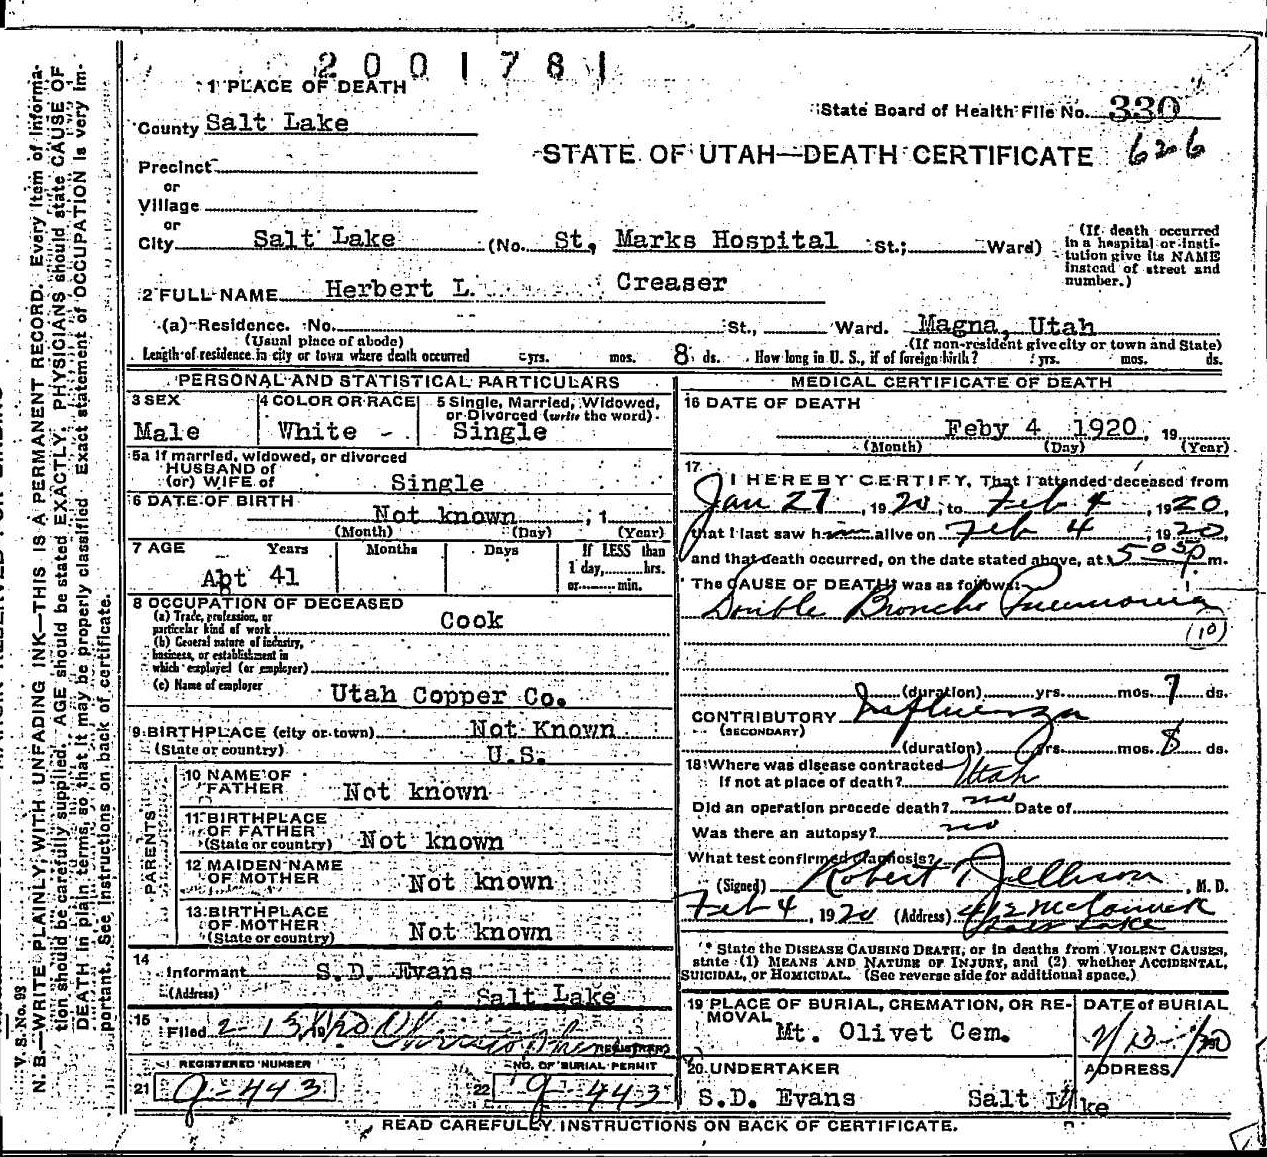 2001781
1 PLACE OF DEATH
State Board of Health File No. 330
County Salt Lake
STATE OF UTAH—DEATH CERTIFICATE 626
Precinct
or
Village
or
City Salt Lake (No. St, Marks Hospital St.; Ward)
(If death occurred in a hospital or institution give its NAME instead of street and number.)
2 FULL NAME Herbert L. Creaser
(a) Residence. No. St., Ward. Magna, Utah
(Usual place of abode) (If non-resident give city or town and State)
Length of residence in city or town where death occurred yrs. mos. 8 ds. How long in U. S., if of foreign birth? yrs. mos. ds.
PERSONAL AND STATISTICAL PARTICULARS
3 SEX
Male
4 COLOR OR RACE
White -
5 Single, Married, Widowed,
or Divorced (write the word).
Single
5a If married, widowed, or divorced
HUSBAND of
(or) WIFE of Single
6 DATE OF BIRTH
Not known ; 1
(Month) (Day) (Year)
7 AGE Years Months Days If LESS than
1 day,.....hrs.
or.....min.
Abt 41
8 OCCUPATION OF DECEASED
(a) Trade, profession, or
particular kind of work Cook
(b) General nature of industry,
business, or establishment in
which employed (or employer)
(c) Name of employer Utah Copper Co.
9 BIRTHPLACE (city or town) Not Known
(State or country) U.S.
PARENTS
10 NAME OF
FATHER Not known
11 BIRTHPLACE
OF FATHER
(State or country) Not known
12 MAIDEN NAME
OF MOTHER Not known
13 BIRTHPLACE
OF MOTHER
(State or country) Not known
14
Informant S.D. Evans
(Address) Salt Lake
15
Filed 2-13 1920
REGISTRAR
REGISTERED NUMBER
21 g-443
NO. OF BURIAL PERMIT
22 g-443
MEDICAL CERTIFICATE OF DEATH
16 DATE OF DEATH
Feby 4 1920, 19
(Month) (Day) (Year)
17
I HEREBY CERTIFY, That I attended deceased from
Jan 27, 1920, to Feb 4, 1920,
that I last saw him alive on Feb 4, 1920,
and that death occurred, on the date stated above, at 5 05 p m.
The CAUSE OF DEATH* was as follows:
Double Broncho Pneumonia
(10)
(duration) yrs. mos. 7 ds.
CONTRIBUTORY Influenza
(SECONDARY)
(duration) yrs. mos. 8 ds.
18 Where was disease contracted
If not at place of death? Utah
Did an operation precede death? no Date of
Was there an autopsy? no
What test confirmed diagnosis?
(Signed) Robert Jellison, M. D.
Feb 4, 1920 (Address) McCornick
Salt Lake
* State the DISEASE CAUSING DEATH, or in deaths from VIOLENT CAUSES,
state (1) MEANS AND NATURE OF INJURY, and (2) whether ACCIDENTAL,
SUICIDAL, or HOMICIDAL. (See reverse side for additional space.)
19 PLACE OF BURIAL, CREMATION, OR RE-
MOVAL
Mt. Olivet Cem.
DATE of BURIAL
2/13-/20
20 UNDERTAKER
S.D. Evans
ADDRESS
Salt Lake
READ CAREFULLY INSTRUCTIONS ON BACK OF CERTIFICATE.
V. S. No. 93
N. B.—WRITE PLAINLY, WITH UNFADING INK—THIS IS A PERMANENT RECORD. Every item of informa-
tion should be carefully supplied. AGE should be stated EXACTLY. PHYSICIANS should state CAUSE OF
DEATH in plain terms, so that it may be properly classified. Exact statement of OCCUPATION is very im-
portant. See instructions on back of certificate.